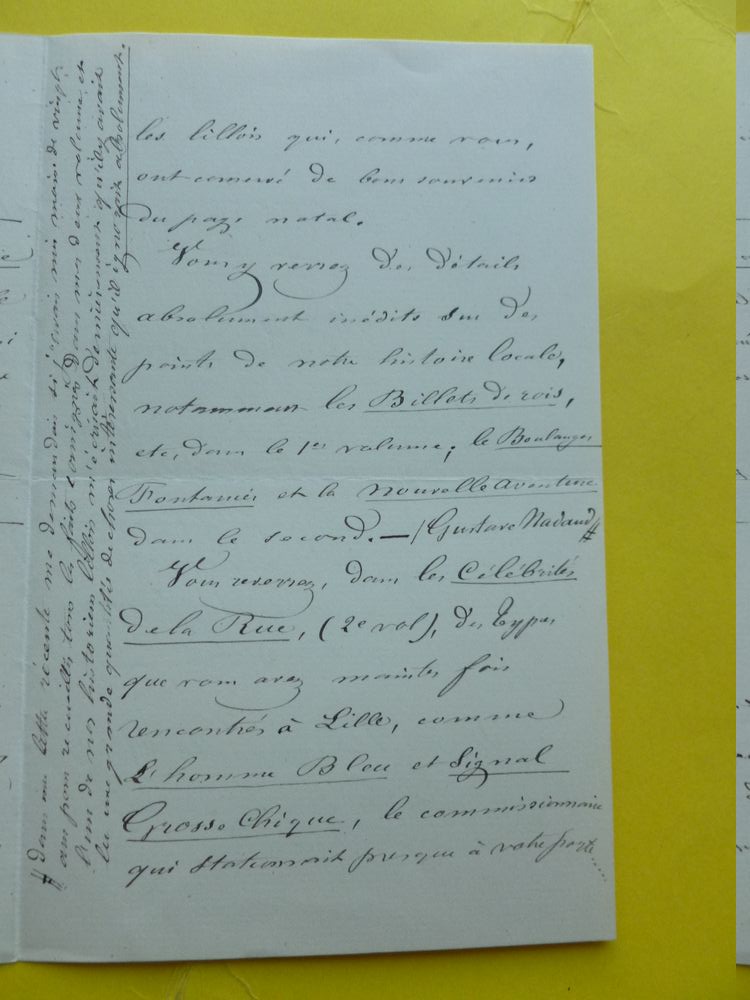 les lillois qui, comme vous,
ont conservé de bons souvenirs
du pays natal.
Vous y verrez des détails
absolument inédits sur des
points de notre histoire locale,
notamment les Billets de rois,
etc, dans le 1er volume; le Boulanger
Fontanié et la nouvelle aventure
dans le second. — (Gustave Nadaud #
Vous reverrez, dans les Célébrités
de la Rue, (2e vol), des types
que vous avez maintes fois
rencontrés à Lille, comme
L'homme Bleu et Signal
Grosse Chique, le commissionnaire
qui stationnait presque à votre porte.....
# Dans une lettre récente me demandait si j'avais mis moins de vingt
ans pour recueillir tous les faits consignés dans mes deux volumes, et
l'un de nos historiens lillois m'écrivait dernièrement qu'il y avait
lu une grande quantité de choses intéressantes qu'il ignorait absolument.